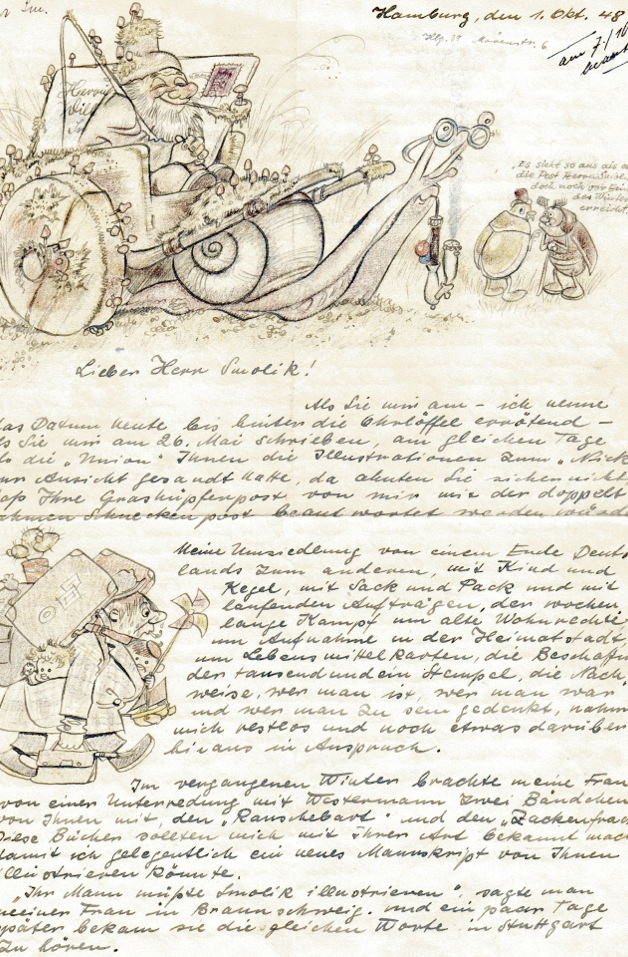 Hamburg, den 1. Okt. 48
am 7./10
Herrn
"Es sieht so aus als
die Post Herrn
doch noch vor
des Winters
erreicht.
Lieber Herr Smolik!
Als Sie mir am – ich nenne
das Datum heute bis hinter die Ohrlöffel errötend –
als Sie mir am 26. Mai schrieben, am gleichen Tage
als die „Union" Ihnen die Illustrationen zum „Nick
zur Ansicht gesandt hatte, da ahnten Sie sicher nicht,
daß Ihre Grashüpferpost von mir mit der doppelt
Schneckenpost beantwortet werden würde
Meine Umsiedlung von einem Ende Deut
lands zum anderen, mit Kind und
Kegel, mit Sack und Pack und mit
laufenden Aufträgen, der wochen
lange Kampf um alte Wohnrechte
um Aufnahme in der Heimatstadt
um Lebensmittelkarten, die Beschaf
der tausendundein Stempel, die Nach
weise, wer man ist, wer man war
und wer man zu sein gedenkt, nahm
mich restlos und noch etwas darüber
hinaus in Anspruch.
Im vergangenen Winter brachte meine Frau
von einer Unterredung mit Westermann zwei Bändchen
von Ihnen mit, den „Rauschebart" und den „Zackenfrack
Diese Bücher sollten mich mit Ihrer Art bekannt mach
damit ich gelegentlich ein neues Manuskript von Ihnen
illustrieren könnte.
„Ihr Mann müßte Smolik illustrieren", sagte man
meiner Frau in Braunschweig. und ein paar Tage
später bekam sie die gleichen Worte in Stuttgart
zu hören.